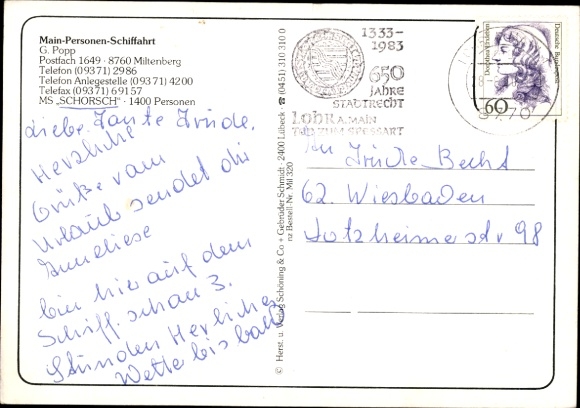 Main-Personen-Schiffahrt
G. Popp
Postfach 1649 · 8760 Miltenberg
Telefon (09371) 2986
Telefon Anlegestelle (09371) 4200
Telefax (09371) 69157
MS „SCHORSCH“ · 1400 Personen
Liebe Tante Trude.
Herzliche
Grüße vom
Urlaub sendet dir
Anneliese
bin hier auf dem
Schiff. schon 3.
Stunden Herrliches
Wetter bis bald
© Herst. u. Verlag Schöning & Co + Gebrüder Schmidt · 2400 Lübeck ☎ (0451) 310 310 0
nz Bestell-Nr. Mil 320
1333–
1983
650
JAHRE
STADTRECHT
LOHR A. MAIN
TOR ZUM SPESSART
8770
Dorothea Erxleben
Deutsche Bundespost
60
An Trude Becht
62. Wiesbaden
Dotzheimerstr 98